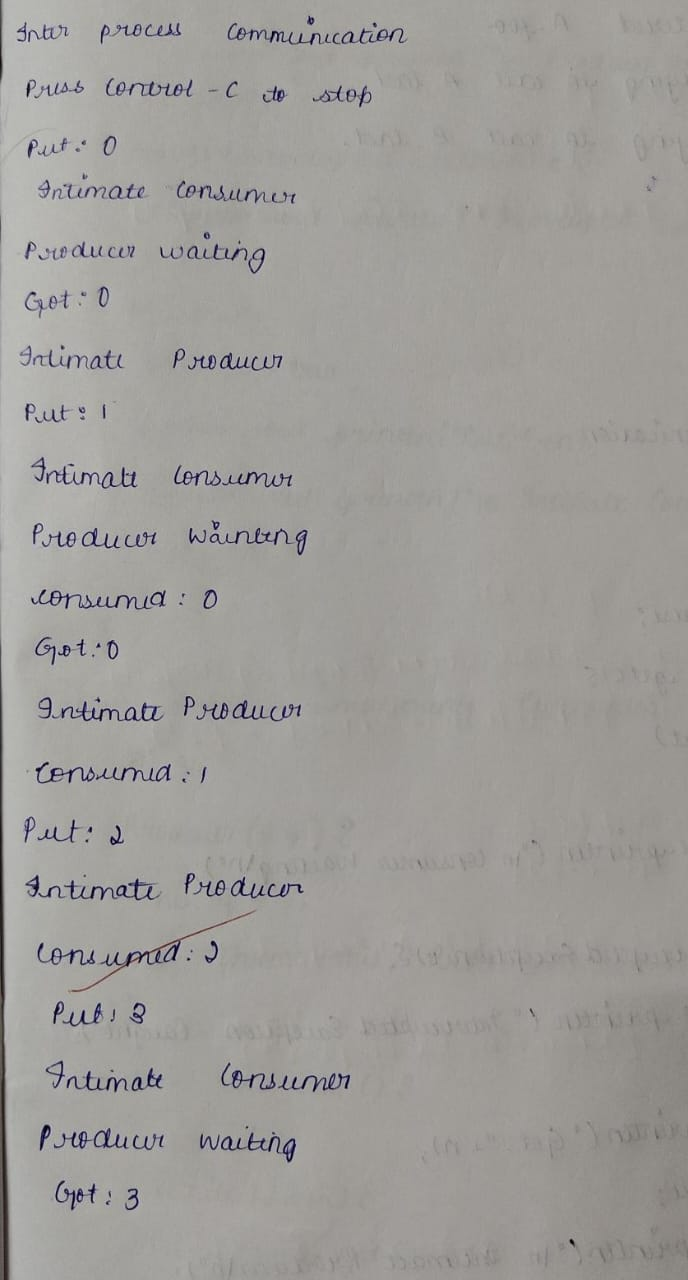 Inter process communication
Press Control - C to stop
Put: 0
Intimate Consumer
Producer waiting
Got: 0
Intimate Producer
Put: 1
Intimate Consumer
Producer wainting
consumed: 0
Got: 0
Intimate Producer
Consumed: 1
Put: 2
Intimate Producer
Consumed: 2
Put: 3
Intimate Consumer
Producer waiting
Got: 3